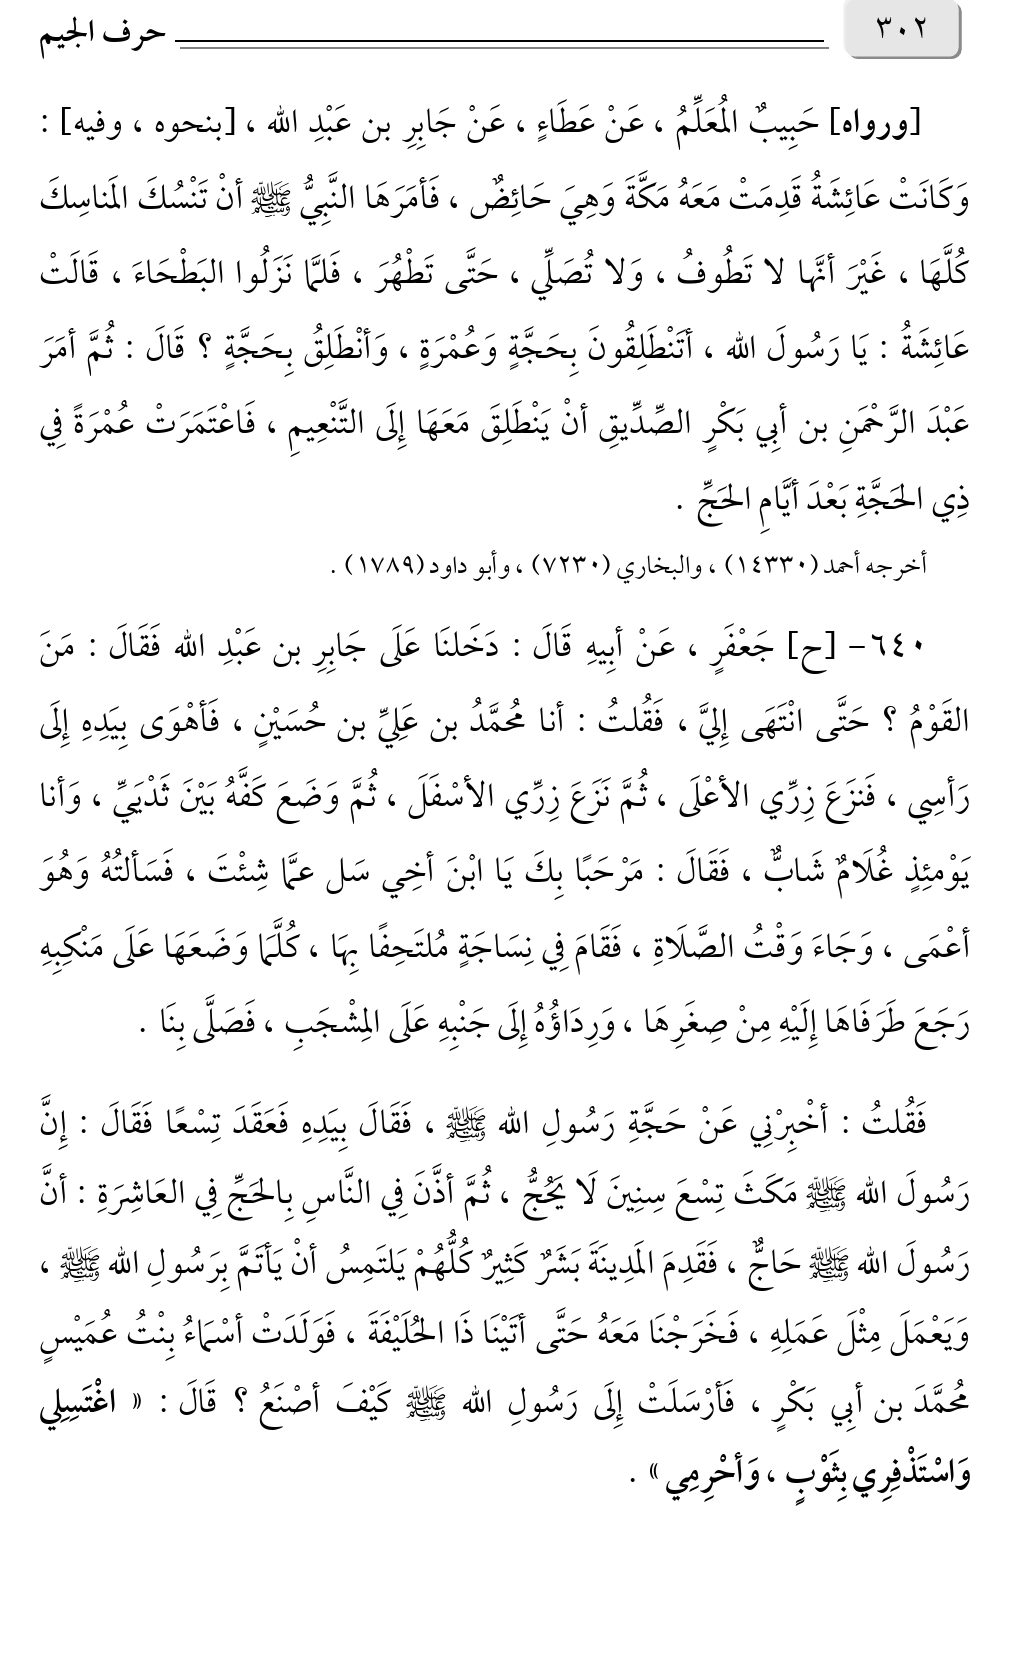 ٣٠٢ حرف الجيم
[ورواه] حَبِيبٌ المُعَلِّمُ ، عَنْ عَطَاءٍ ، عَنْ جَابِرِ بن عَبْدِ الله ، [بنحوه ، وفيه] :
وَكَانَتْ عَائِشَةُ قَدِمَتْ مَعَهُ مَكَّةَ وَهِيَ حَائِضٌ ، فَأمَرَهَا النَّبِيُّ ﷺ أنْ تَنْسُكَ المَناسِكَ
كُلَّهَا ، غَيْرَ أنَّها لا تَطُوفُ ، وَلا تُصَلِّي ، حَتَّى تَطْهُرَ ، فَلمَّا نَزَلُوا البَطْحَاءَ ، قَالَتْ
عَائِشَةُ : يَا رَسُولَ الله ، أتَنْطَلِقُونَ بِحَجَّةٍ وَعُمْرَةٍ ، وَأنْطَلِقُ بِحَجَّةٍ ؟ قَالَ : ثُمَّ أمَرَ
عَبْدَ الرَّحْمَنِ بن أبِي بَكْرٍ الصِّدِّيقِ أنْ يَنْطَلِقَ مَعَهَا إِلَى التَّنْعِيمِ ، فَاعْتَمَرَتْ عُمْرَةً فِي
ذِي الحَجَّةِ بَعْدَ أيَّامِ الحَجِّ .
أخرجه أحمد (١٤٣٣٠) ، والبخاري (٧٢٣٠) ، وأبو داود (١٧٨٩) .
٦٤٠- [ح] جَعْفَرٍ ، عَنْ أبِيهِ قَالَ : دَخَلنَا عَلَى جَابِرِ بن عَبْدِ الله فَقَالَ : مَنَ
القَوْمُ ؟ حَتَّى انْتَهَى إِليَّ ، فَقُلتُ : أنا مُحمَّدُ بن عَلِيِّ بن حُسَيْنٍ ، فَأهْوَى بِيَدِهِ إِلَى
رَأسِي ، فَنزَعَ زِرِّي الأعْلَى ، ثُمَّ نَزَعَ زِرِّي الأسْفَلَ ، ثُمَّ وَضَعَ كَفَّهُ بَيْنَ ثَدْيَيِّ ، وَأنا
يَوْمئِذٍ غُلَامٌ شَابٌّ ، فَقَالَ : مَرْحَبًا بِكَ يَا ابْنَ أخِي سَل عمَّا شِئْتَ ، فَسَألتُهُ وَهُوَ
أعْمَى ، وَجَاءَ وَقْتُ الصَّلَاةِ ، فَقَامَ فِي نِسَاجَةٍ مُلتَحِفًا بِهَا ، كُلَّمَا وَضَعَهَا عَلَى مَنْكِبِهِ
رَجَعَ طَرَفَاهَا إِلَيْهِ مِنْ صِغَرِهَا ، وَرِدَاؤُهُ إِلَى جَنْبِهِ عَلَى المِشْجَبِ ، فَصَلَّى بِنَا .
فَقُلتُ : أخْبِرْنِي عَنْ حَجَّةِ رَسُولِ الله ﷺ ، فَقَالَ بِيَدِهِ فَعَقَدَ تِسْعًا فَقَالَ : إِنَّ
رَسُولَ الله ﷺ مَكَثَ تِسْعَ سِنِينَ لَا يَحُجُّ ، ثُمَّ أذَّنَ فِي النَّاسِ بِالحَجِّ فِي العَاشِرَةِ : أنَّ
رَسُولَ الله ﷺ حَاجٌّ ، فَقَدِمَ المَدِينَةَ بَشَرٌ كَثِيرٌ كُلُّهُمْ يَلتَمِسُ أنْ يَأتَمَّ بِرَسُولِ الله ﷺ ،
وَيَعْمَلَ مِثْلَ عَمَلِهِ ، فَخَرَجْنَا مَعَهُ حَتَّى أتَيْنَا ذَا الحُلَيْفَةَ ، فَوَلَدَتْ أسْمَاءُ بِنْتُ عُمَيْسٍ
مُحمَّدَ بن أبِي بَكْرٍ ، فَأرْسَلَتْ إِلَى رَسُولِ الله ﷺ كَيْفَ أصْنَعُ ؟ قَالَ : « اغْتَسِلِي
وَاسْتَذْفِرِي بِثَوْبٍ ، وَأحْرِمِي » .